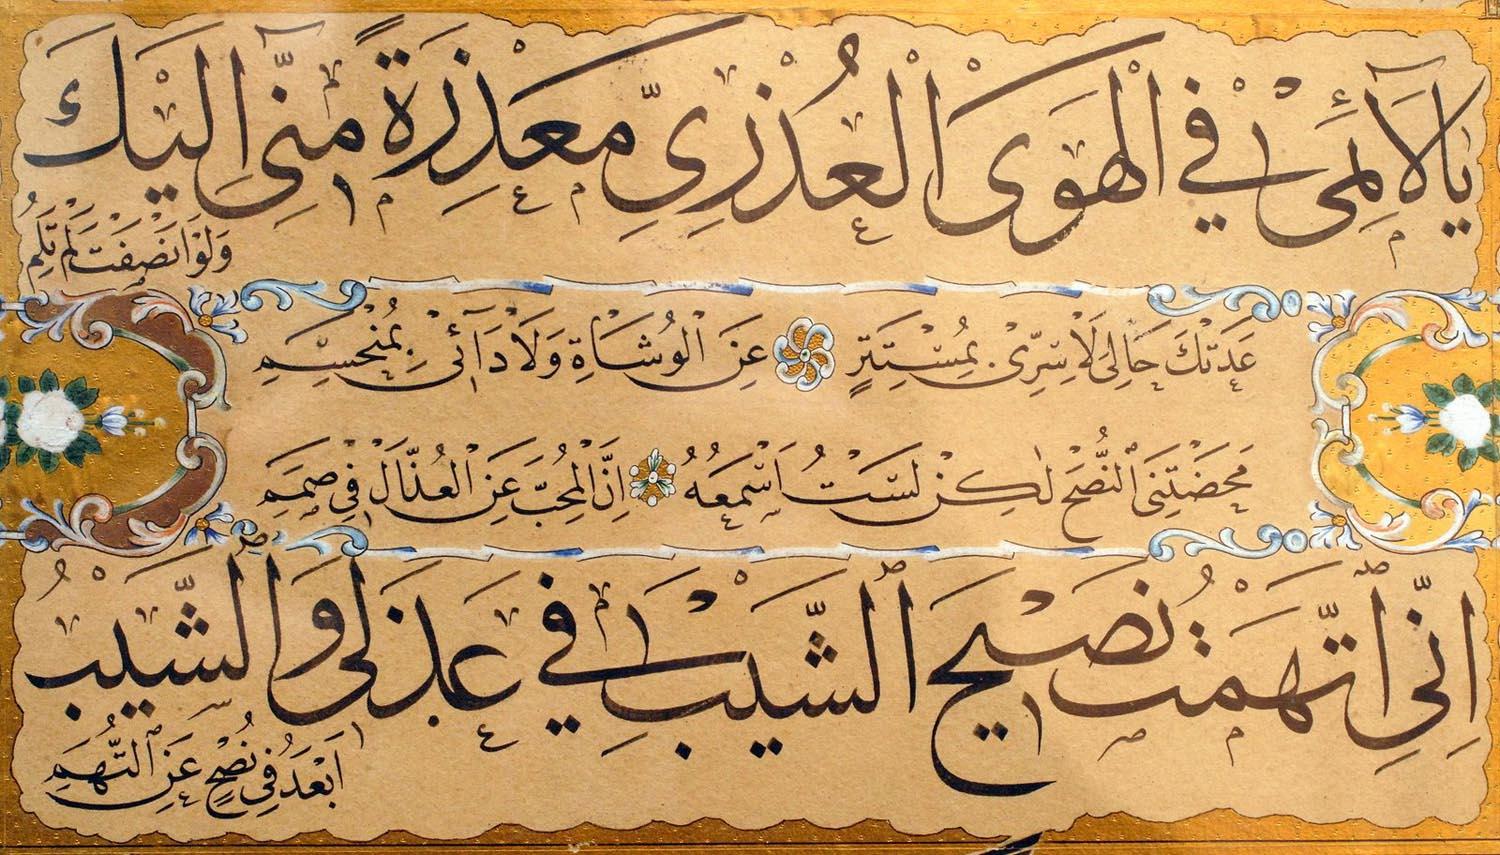 يَا لَآئِمِى فِي الْهَوَى الْعُذْرِىِّ مَعْذِرَةً مِنِّى اِلَيْكَ
وَلَوْ اَنْصَفْتَ لَمْ تَلُمِ
عَدَتْكَ حَالِىَ لَاسِرِّى بِمُسْتَتِرٍ عَنِ الْوُشَاةِ وَلَا دَآئِى بِمُنْحَسِمِ
مَحَضْتَنِى النُّصْحَ لٰكِنْ لَسْتُ اَسْمَعُهُ اِنَّ الْمُحِبَّ عَنِ الْعُذَّالِ فِى صَمَمِ
اِنِّى اتَّهَمْتُ نَصِيحَ الشَّيْبِ فِي عَذَلِى وَالشَّيْبُ
اَبْعَدُ فِى نُصْحٍ عَنِ التُّهَمِ